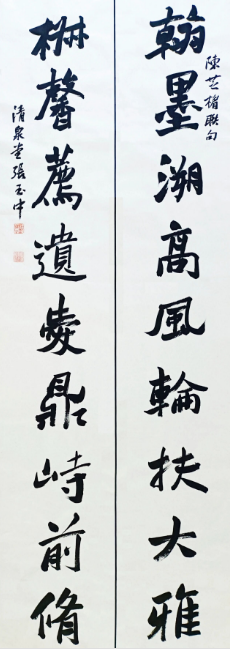 翰墨溯高風輪扶大雅
陳芝楣聯句
椒馨薦遺愛鼎峙前脩
清泉堂張玉中